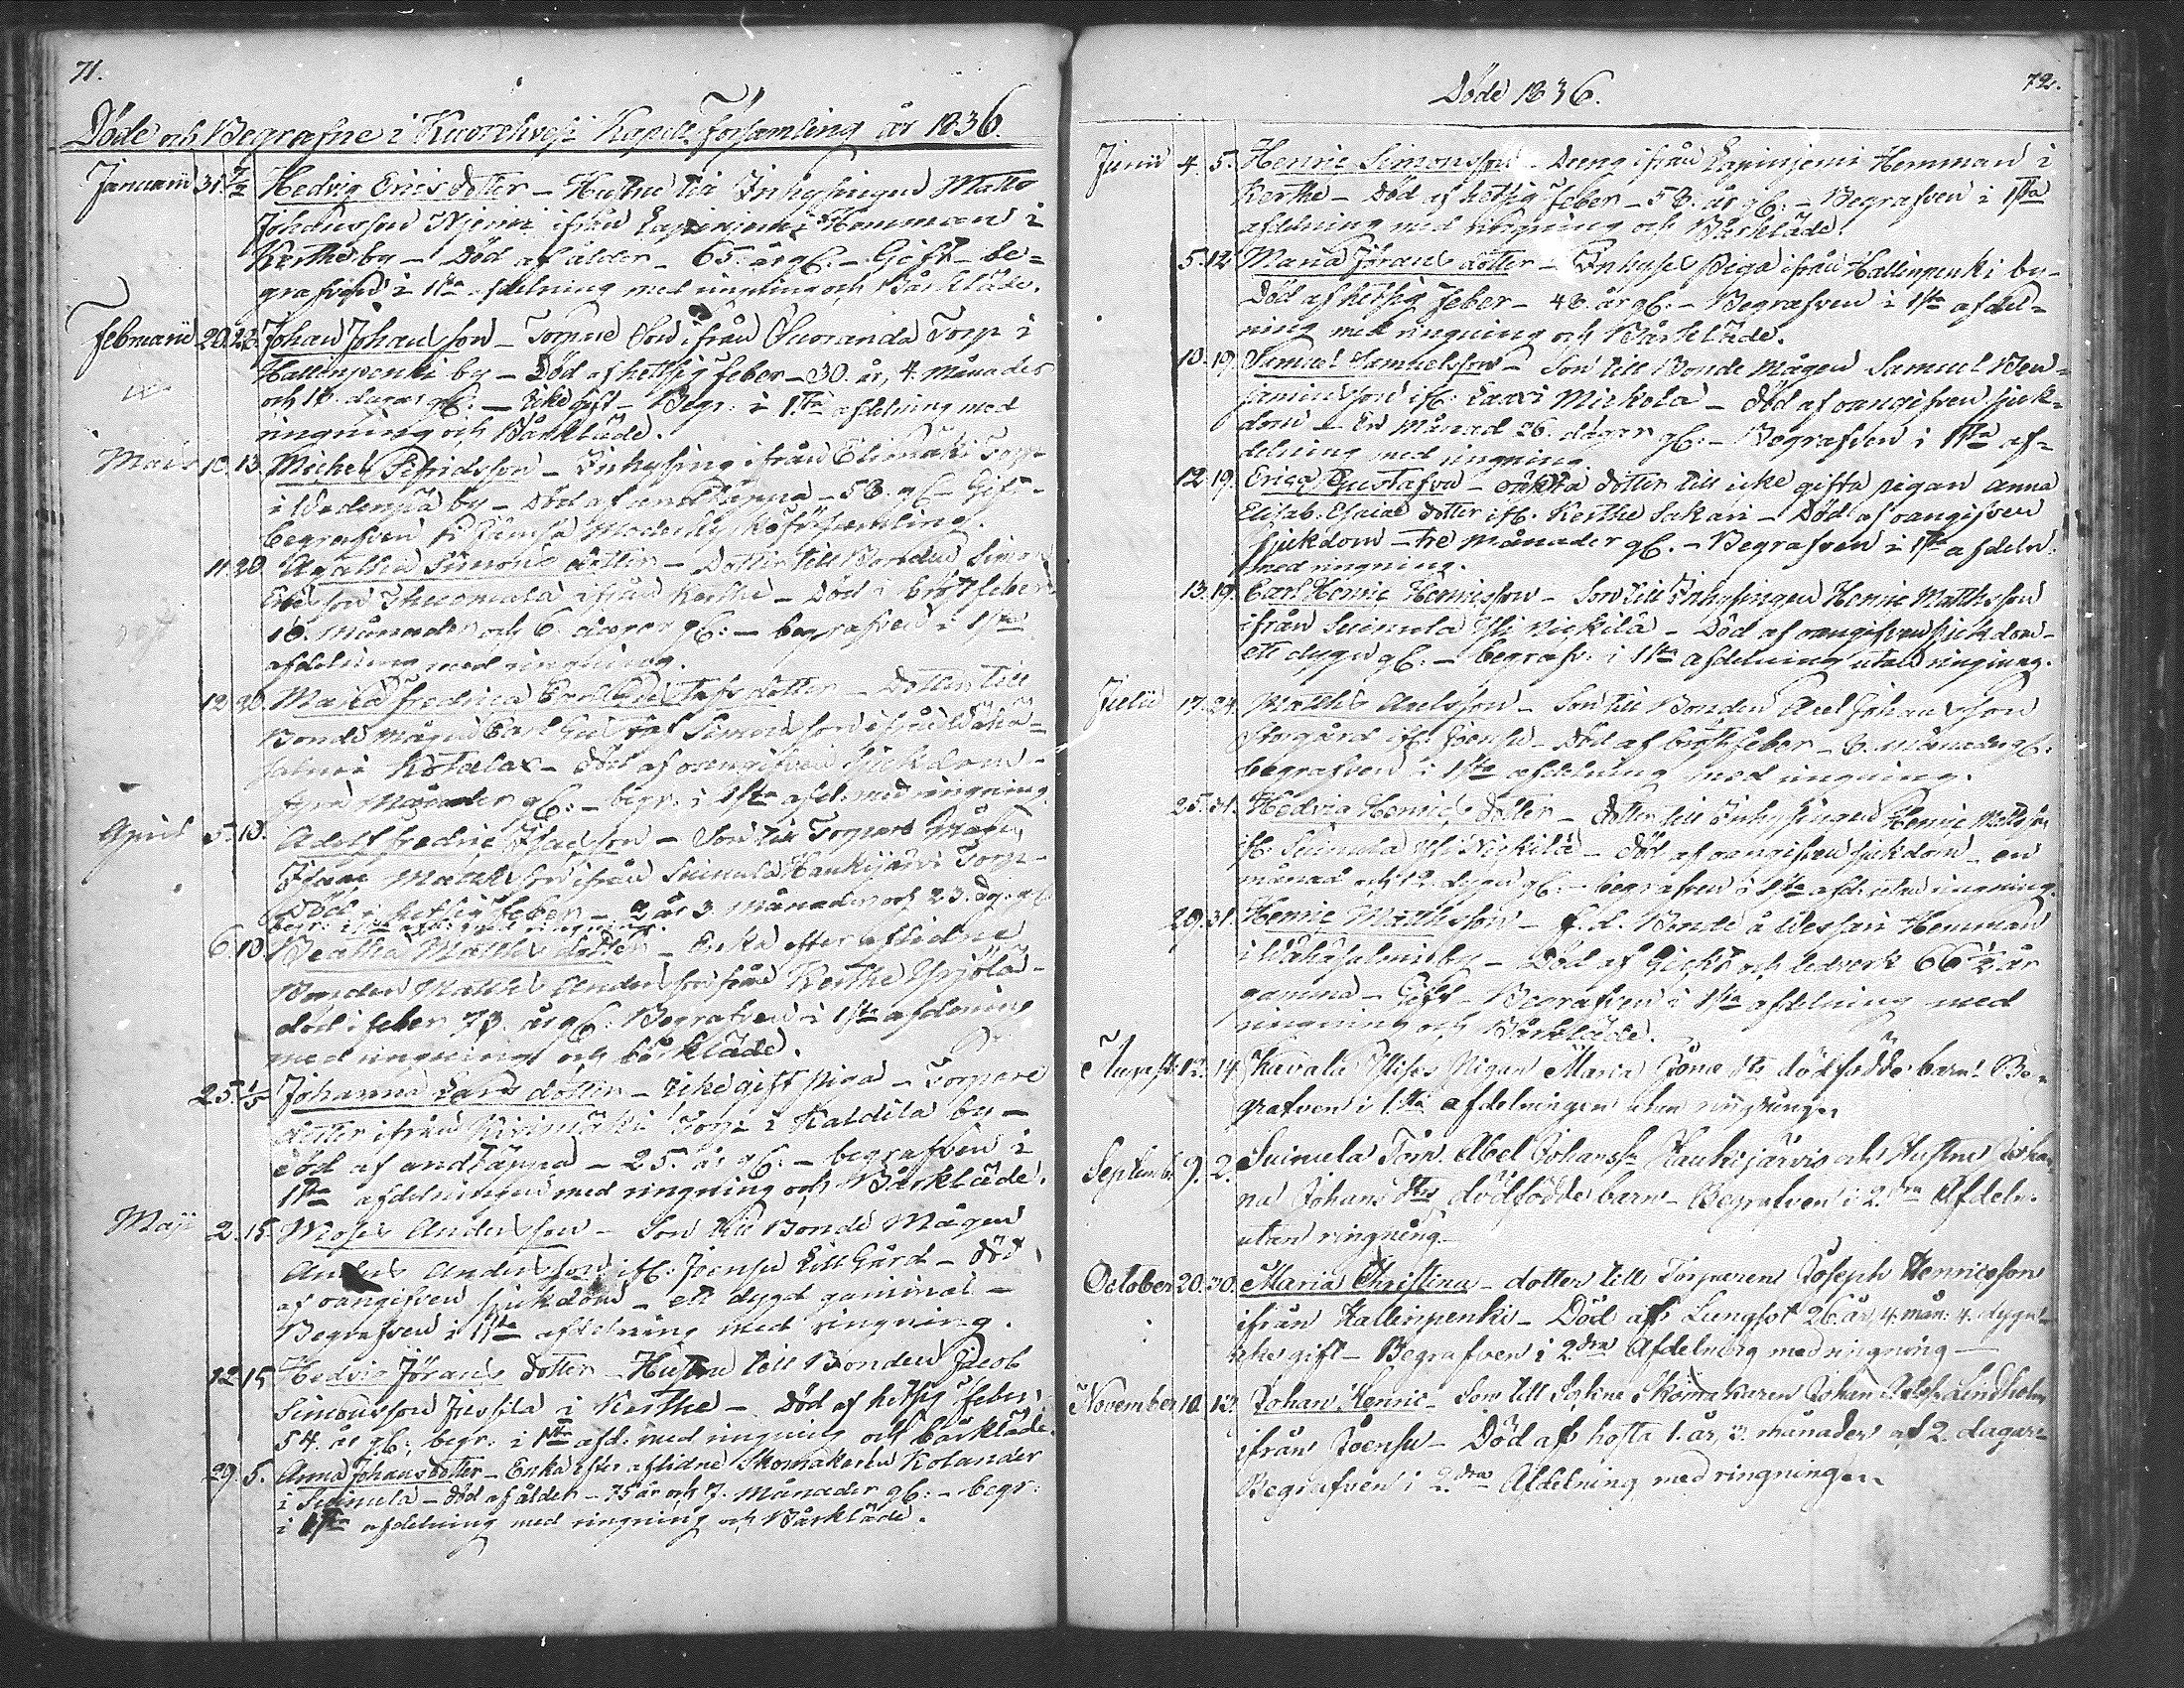 71.
Döde och Begrafne i Kuorehvesi Kapell Församling år 1836.
Januarii 31. 7/2 Hedvig Ericsdotter - Hustru till Inhysingen Matts
Johansson ifrån Lapinjemi Hemman i
Kerthe by - Död af ålder - 65. år gl. - Gift - be=
grafven i 1sta afdelning med ringning och Bårkläde.
Februarii 20. 28. Johan Johansson - Torpare Son ifrån Suoranda Torp i
Hallinpenki by - Död af hettsig feber - 30. år, 4. Månader
och 18. dagar gl. - Icke gift - Begr. i 1sta afdelning med
ringning och Bårkläde.
Mars 10. 13. Michel Sifridsson - Inhysing ifrån Elimäki Torp
i by - Död af andtäppa - 58. gl - Gift -
begrafven i Jämsä Moderkyrkoförsamling.
11. 20. Agatha Simonsdotter - Dotter till Bonden Simon
Ericsson Tuomala ifrån Kerthe - Död i Bröstfeber
16. Månader och 6. dagar gl: - begrafven i 1sta
afdelning med ringning.
12. 20. Maria Fredrica Carl Gustafsdotter - Dotter till
Bonde mågen Carl Gustaf Simonsson ifrån Wäha=
salmi Kotala - död af oangifven sjukdom -
fyra Månader gl: - begr. i 1sta afd. med ringning.
April 5. 10. Adolf Fredric Isacsson - Son till Torpare Mågen
Isaac Mattsson ifrån Suinula Haukijärvi Torp -
Död i hettsig feber - 2 år 3. Månader och 23. dag. gl.
begr. i 1sta afd. med ringning.
6. 10. Beatha Matthsdotter - Enka efter aflidne
Bonden Matths Andersson från Kerthe Yrjölä -
död i feber 73. år gl. Begrafven i 1sta afdelning
med ringning och bårkläde.
25. 1/5 Johanna Larsdotter - icke gift piga - Torpare
dotter ifrån Kivimäki Torp i Kaldila by -
död af andtäppa - 25. år gl: - begrafven i
1sta afdelningen med ringning och Bårkläde.
Maji 2. 15. Moses Andersson - Son till Bonde Mågen
Anders Andersson ifl. Joensu Lill Gård - död
af oangifven sjukdom - ett dygn gammal -
Begrafven i 1sta afdelning med ringning.
12. 15. Hedvig Jöransdotter - Hustru till Bonden Jacob
Simonsson Jussila i Kerthe - Död af hettsig feber,
54. år gl: begr. i 1sta afd. med ringning och bårkläde.
29. 5. Anna Johansdotter - Enka efter aflidne Skomakaren Kolander
i Suinula - död af ålder - 75 år och 7. Månader gl: - begr:
i 1sta afdelning med ringning och Bårkläde.
Döde 1836.
72.
Junii 4. 5. Henric Simonsson - Dreng ifrån Lapinjemi Hemman i
Kerthe - Död af hettsig feber - 58. år gl: - Begrafven i 1sta
afdelning med ringning och Bårkläde.
5. 12. Maria Jöransdotter - Inhyses piga ifrån Hallinpenki by -
Död af hettsig feber - 48. år gl: - Begrafven i 1sta afdel=
ning med ringning och Bårkläde.
10. 19. Samuel Samuelsson - Son till Bonde mågen Samuel Ben=
jaminsson ifl. Laavi Mickola - död af oangifven sjuk=
dom - En månad 26. dagar gl: - Begrafven i 1sta af=
delning med ringning.
12. 19. Erica Gustafva - oäkta dotter till icke gifta pigan Anna
Elisab. Esaiaedotter ifl. Kerthe Sakari - Död af oangifven
sjukdom - Tre Månader gl. - Begrafven i 1sta afdeln.
med ringning.
13. 19. Carl Henric Henricsson - Son till Inhysingen Henric Matthsson
ifrån Suinula Yli Nickilä - Död af oangifven sjukdom -
ett dygn gl: - begrafv. i 1sta afdelning utan ringning.
Julii 17. 24. Matths Axelsson - Son till Bonden Axel Johansson
Storgård ifl. Joensu - Död af bröstfeber - 8. månader gl.
begrafven i 1sta afdelning med ringning.
25. 31. Hedvig Henricsdotter - dotter till Inhysingen Henric Mattsson
ifl. Suinula Yli Nickilä - död af oangifven sjukdom - en
månad och 12. dygn gl: - begrafven i 1sta afd. utan ringning.
29. 31. Henric Matthsson - f. d. Bonde å Hemman
i Wähäsalmi by - Död af Gickt och ledverk 66 1/2 år
gamma - Gift - Begrafven i 1sta afdelning med
ringning och Bårkläde.
August. 12. 14. Kavala Ylises Pigan Maria Jöns dtr dödfödde barn. Be=
grafven i 1sta afdelningen utan ringning.
September 9. 2. Suinula Torp. Abel Johanss: Haukijärvis och Hustrus Johan=
na Johans dtrs dödfödde barn - Begrafven i 2dra Afdeln.
utan ringning -
October 20. 30. Maria Christina - dotter till Torparen Joseph Henricsson
ifrån Hallinpenki - Död af Lungsot 26 år, 4. mån. 4. dygn -
icke gift - Begrafven i 2dra Afdelning med ringning -
November 10. 13. Johan Henric - Son till Sockne Skomakaren Johan Lindholm
ifrån Joensu - Död af hosta 1. år, 3. månader och 2. dagar -
Begrafven i 2dra Afdelning med ringning.